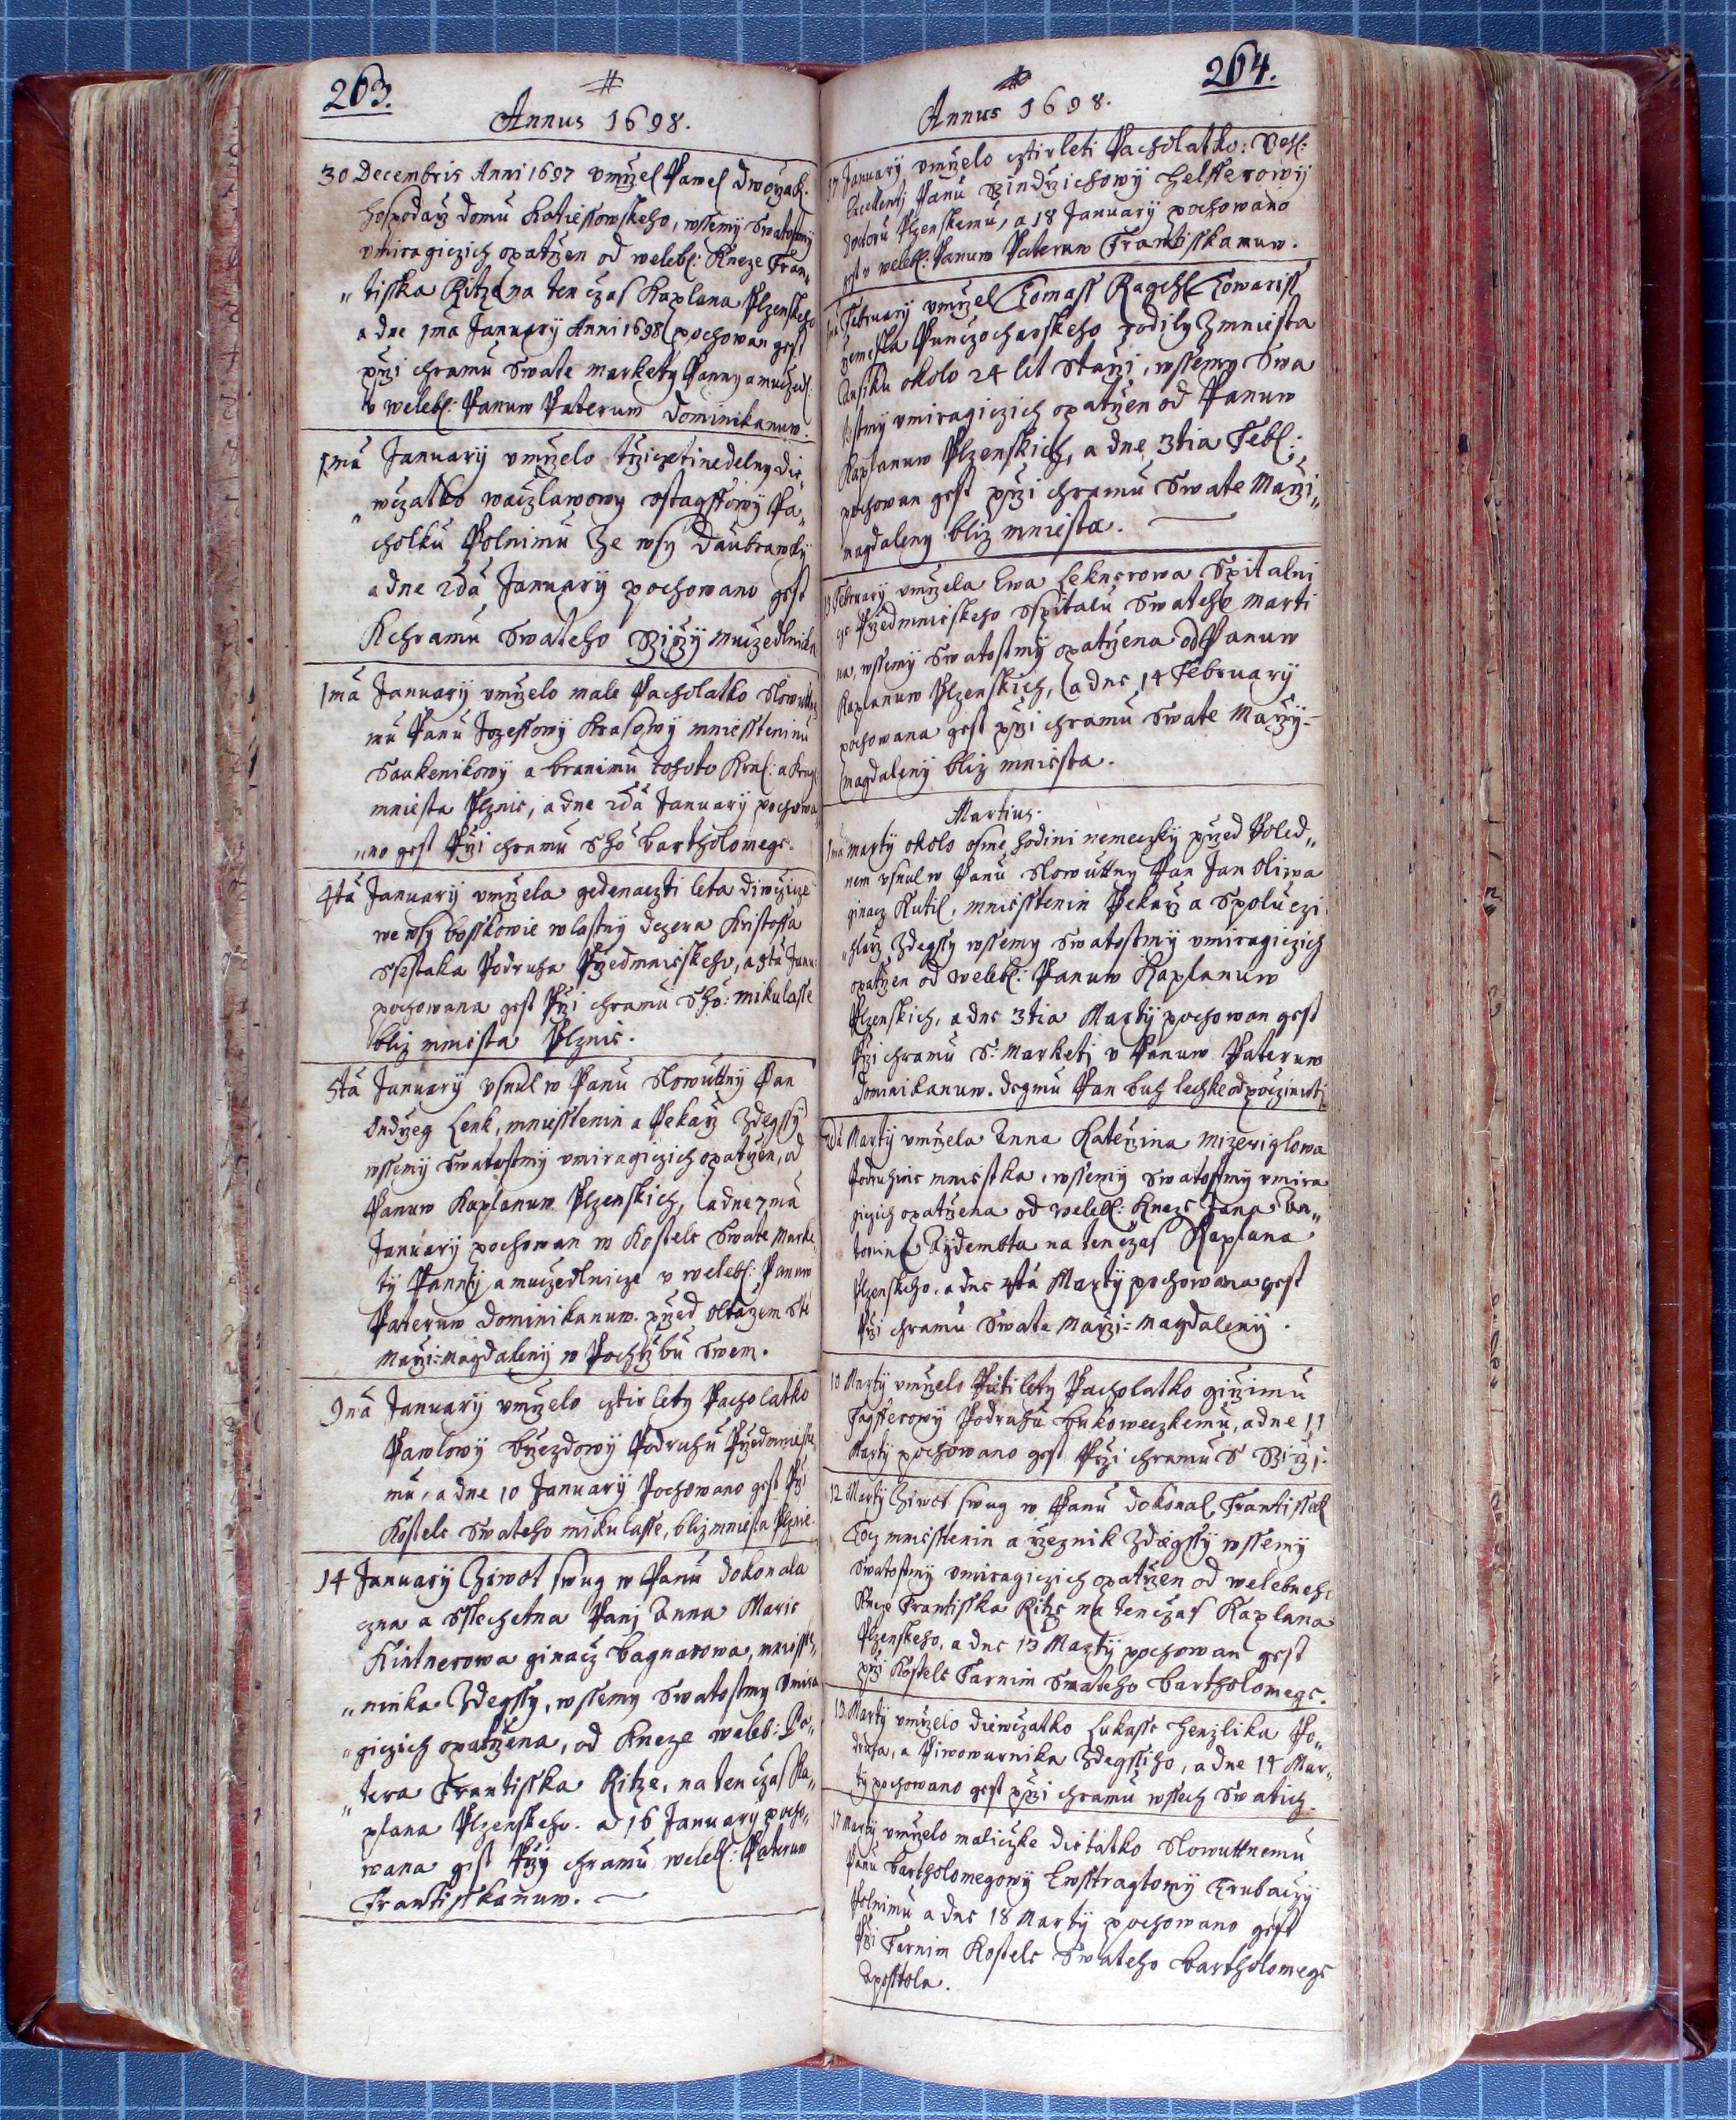 263.
Annus 1698.
30 Decembris Anni 1697 vmrzel Pawel Dworzak.
hospodarz domu Katiessowskeho, wssemy Swatostmy
vmiragiczich opatrzen od welebl: Kneze Fran„
„tisska Ritze na ten czas Kaplana Plzenskeho
a dne 1ma January Anni 1698 pochowan gest
przi chramu Swate Markety Panny a muczedl:
v welebl: Panuw Pateruw Dominikanuw.
1ma January vmrzelo trzicztinedelny die„
„wczatko waczlawowy ostagssowy Pa„
cholku Polnimu Ze wsy Daubrawky
a dne 2da January pochowano gest
K chramu Swateho Girzy Muczedlnika
1ma January vmrzelo male Pacholatko Slowuttne„
mu Panu Jozeffowy Krasowy mniesteninu
Saukenikowy a branimu tohoto Kral: a Krag:
mniesta Plznie, a dne 2da January pochowa„
„no gest Przi chramu Sho bartholomege.
4ta January vmrzela gedenaczti leta diwczicze
we wsy bosskowie wlastny dczera Kristoffa
Ssestaka Podruha Przedmnieskeho, a 5ta Janu:
pochowana gest Przi chramu Sho: mikulasse
bliz mniesta Plznie.
5ta January vsnul w Panu Slowuttny Pan
Ondrzeg Lenk, mniesstenin a Pekarz Zdegssy
wssemy Swatostmy vmiragiczich opatrzen, od
Panuw Kaplanuw Plzenskich, a dne 7ma
January pochowan w Kostele Swate Marke„
ty Panny a muczedlnicze v welebl: Panuw
Pateruw Dominikanuw. przed oltarzem Ste
Marzi=Magdaleny w Pochrzbu Swem.
9na January vmrzelo cztir lety Pacholatko
Pawlowy brzezdowy Podruhu Przedmniesk„
mu, a dne 10 January Pochowano gest Przi
Kostele Swateho mikulasse, bliz mniesta Plznie.
14 January Ziwot swug w Panu dokonala
czna a Sslechetna Pani Anna Marie
Kintnerowa ginacz bagnarowa, mniesste„
„ninka Zdegssy, wssemy Swatostmy vmira„
„giczich opatrzena, od Kneze weleb: Pa„
„tera Frantisska Ritze, na ten czas Ka„
plana Plzenskeho. a 16 January pocho„
wana gest Przy chramu welebl: Pateruw
Frantisskanuw.
264.
Annus 1698.
17 January vmrzelo cztirleti Pacholatko: Weh:
Excellenti Panu Gindrzichowy Helfferowy
doctoru Plzenskemu, a 18 January pochowano
gest v welebl: Panuw Pateruw Frantisskanuw.
1ma February vmrzel Tomass Ragchl Towariss
rzemesla Punczocharskeho rodily Z mniesta
okolo 24 let Starzi, wssemy Swa
tostmy vmiragiczich opatrzen od Panuw
Kaplanuw Plzenskich, a dne 3tia Febl:
pochowan gest przi chramu Swate Marzi„
magdaleny bliz mniesta.
13 February vmrzela Ewa Leknerowa Spitalni
ge Przedmnieskeho Sspitalu Swateho Marti
na, wssemy Swatostmy opatrzena od Panuw
Kaplanuw Plzenskich, a dne 14 February
pochowana gest przi chramu Swate Marzy=
magdaleny bliz mniesta.
Martius.
1ma marty okolo osme hodini nemeczky przed Poled„
nem vsnul w Panu Slowuttny Pan Jan Oliwa
ginacz Kutil, mniesstenin Pekarz a Spoluczi
„hlarz Zdegssy wssemy Swatostmy vmiragiczich
opatrzen od welebl: Panuw Kaplanuw
Plzenskich, a dne 3tia Marty pochowan gest
Przi chramu S: Markety v Panuw Pateruw
Dominikanuw. Degmu Pan buh lechke odpoczinuti.
2da Marty vmrzela Anna Katerzina Mizeriglowa
Podruhine mniestka, wssemy Swatostmy vmira
giczich opatrzena od welebl: Kneze Jana An„
tonina Aydembta na ten czas Kaplana
Plzenskeho, a dne 4ta Marty pochowana gest
Przi chramu Swate Marzi=Magdaleny.
10 Marty vmrzelo Pieti lety Pacholatko girzimu
Fagfferowy Podruhu Lukoweczkemu, a dne 11
Marty pochowano gest Przi chramu S Girzi.
12 Marty Ziwot swug w Panu dokonal Frantissek
Tocz mniesstenin a rzeznik Zdegssy wssemy
Swatostmy vmiragiczich opatrzen od welebneh„
Kneze Frantisska Ritze na ten czas Kaplana
Plzenskeho, a dne 13 Marty pochowan gest
przi Kostele Farnim Swateho bartholomege.
13 Marty vmrzelo diewczatko Lukasse Henzlika Po„
druha, a Piwowarnika Zdegssiho, a dne 14 Mar„
ty pochowano gest przi chramu wssech Swatich.
17 Marty vmrzelo maliczke dietatko Slowuttnemu
Panu bartholomegowy Ewsttragtowy Trubaczy
Polnimu a dne 18 Marty pochowano gest
Przi Farnim Kostele Swateho bartholomege
Aposstola.